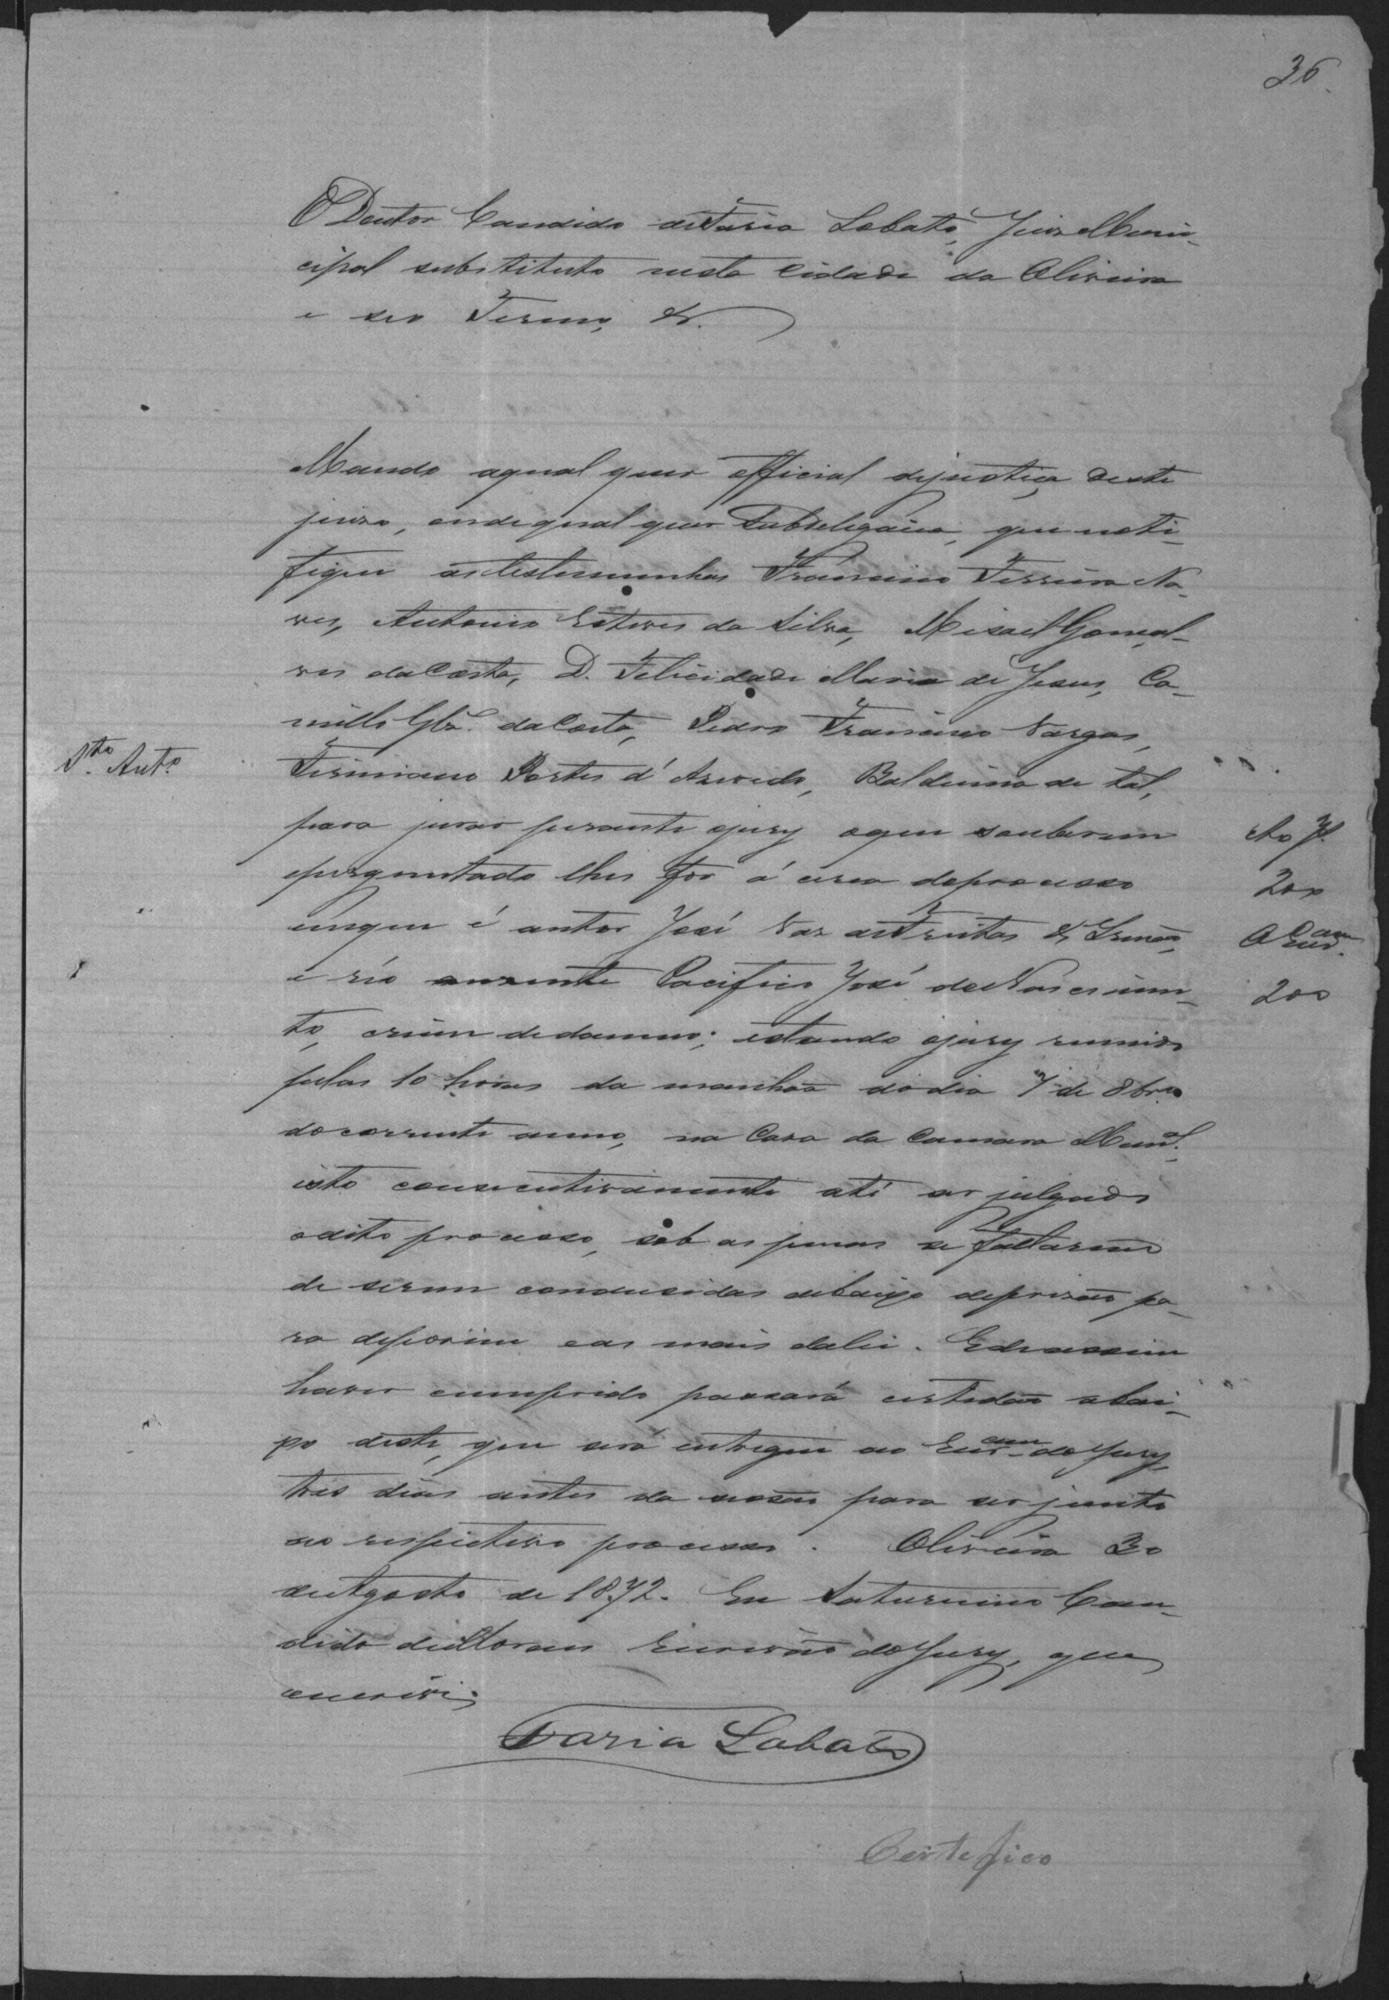 36.
O Doutor Candido de Faria Lobato, Juiz Muni-
cipal substituto nesta Cidade da Oliveira
e seo Termo, &.
Mando aqual quer official dejustiça deste
juizo, ou dequal quer Subdelegacia, que noti-
fique as testemunhas Francisco Ferreira Na-
ves, Antonio Esteves da Silva, Misael Gonçal-
ves da Costa, D. Felicidade Maria de Jesus, Ca-
millo Glz. da Costa, Pedro Francisco Vargas,
Sto. Anto.
Firmiano Portes d'Azevedo, Balduino de tal,
para jurar perante ojury oque souberem
Ao J.
eperguntado lhes for á cerca doprocesso
200
emque é autor José Vaz de Freitas & Irmão,
Ao Escam.
e réo auzente Pacifico José do Nascimen-
200
to, crime dedamno; estando ojury reunido
pelas 10 horas da manhãa do dia 7 de 8bro
docorrente anno, na Casa da Camara Munal.,
isto consecutivamente até ser julgado
odito processo, sob as penas se faltarem
de serem condusidas debaixo deprizão pa-
ra deporem eas mais dalei. Edeassim
haver cumprido passará certidão abai-
xo deste, que será entregue ao Escam. do Jury
tres dias antes da sessão para ser junto
ao respectivo processo. Oliveira 30
de Agosto de 1872. Eu Saturnino Can-
dido de Moraes Escrivão do Jury, que
escrevi.
Faria Lobato
Certefico